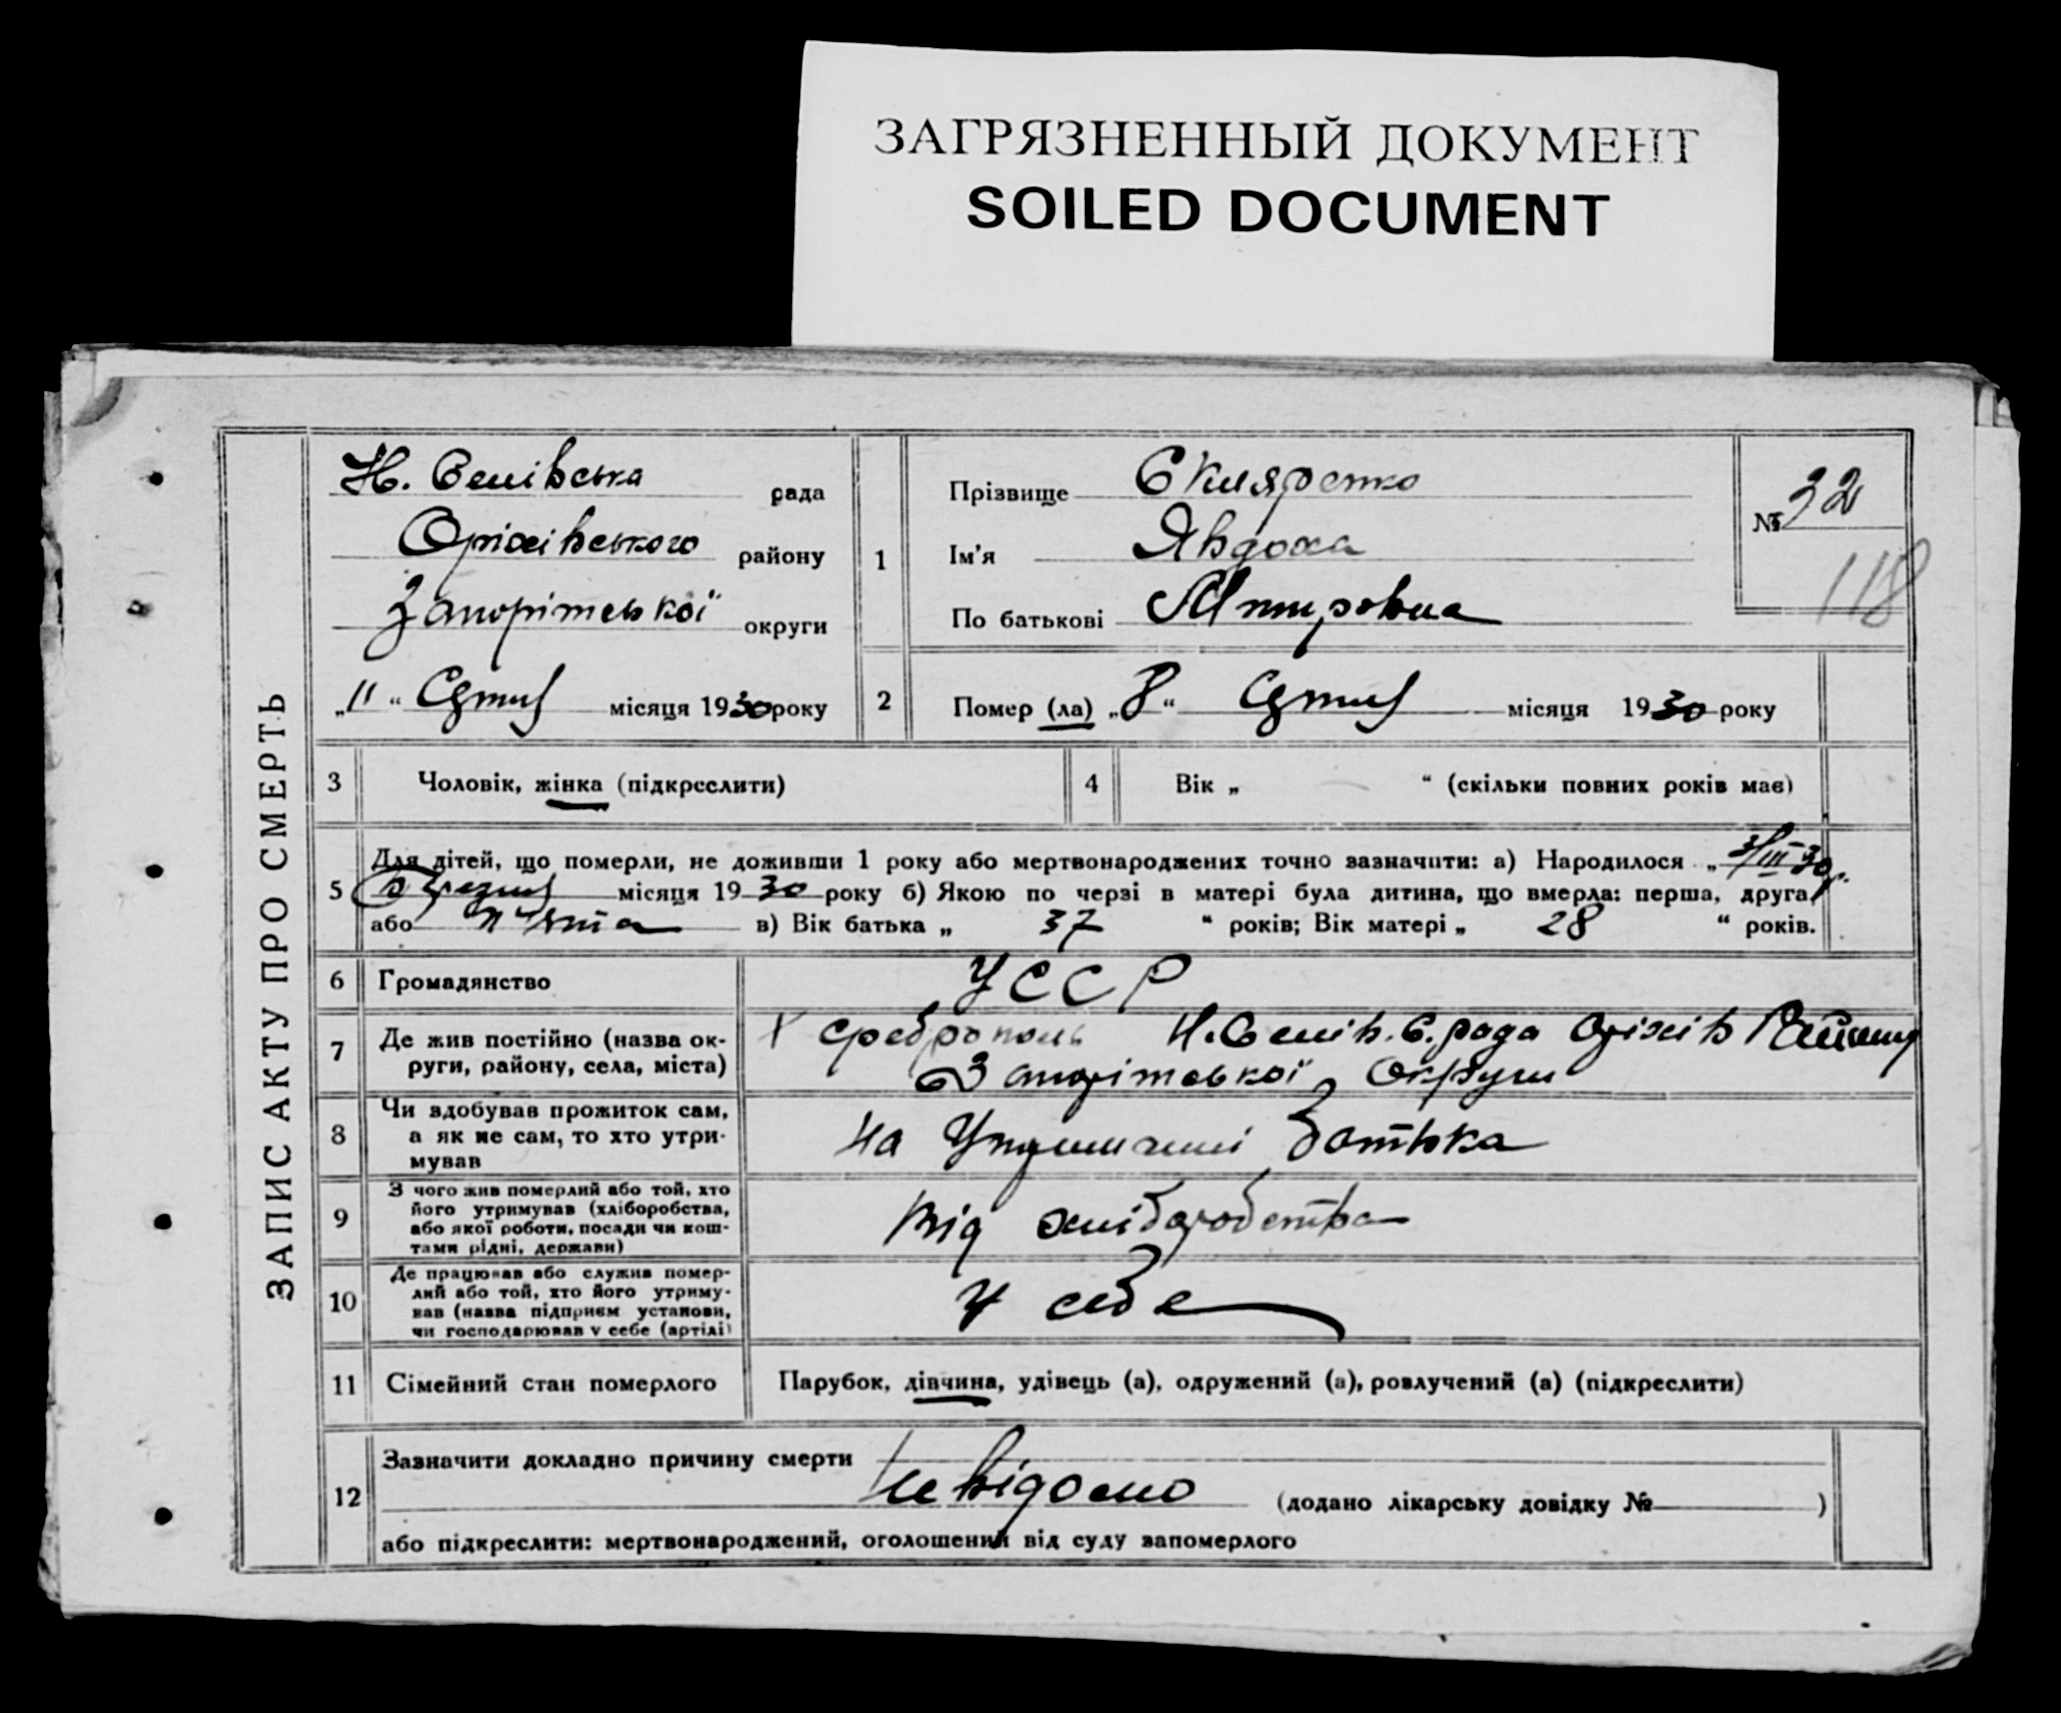 ЗАГРЯЗНЕННЫЙ ДОКУМЕНТ
SOILED DOCUMENT
ЗАПИС АКТУ ПРО СМЕРТЬ
Н. Селівська рада
Оріхівського району
Запоріжської округи
„11“ Серпня місяця 1930 року
1
Прізвище Скляренко
Ім'я Явдоха
По батькові
№ 32
118
2
Помер (ла) „8“ Серпня місяця 1930 року
3 Чоловік, жінка (підкреслити)
4 Вік „ “ (скільки повних років має)
5 Для дітей, що померли, не доживши 1 року або мертвонароджених точно зазначити: а) Народилося „3/III 30р.
Березня місяця 1930 року б) Якою по черзі в матері була дитина, що вмерла: перша, друга
або п'ята в) Вік батька „ 37 “ років; Вік матері „ 28 “ років.
6 Громадянство УССР
7 Де жив постійно (назва ок-
руги, району, села, міста)
Х Среброполь Н. Селів. С. рада Оріхів Району
Запоріжської Округи
8 Чи здобував прожиток сам,
а як не сам, то хто утри-
мував
на Утриманні батька
9 З чого жив померлий або той, хто
його утримував (хліборобства,
або якої роботи, посади чи кош-
тами рідні, держави)
від хліборобства
10 Де працював або служив помер-
лий або той, хто його утриму-
вав (назва підприєм установи,
чи господарював у себе (артілі)
У себе
11 Сімейний стан померлого Парубок, дівчина, удівець (а), одружений (а), розлучений (а) (підкреслити)
12 Зазначити докладно причину смерти
невідомо (додано лікарську довідку № )
або підкреслити: мертвонароджений, оголошений від суду запомерлого